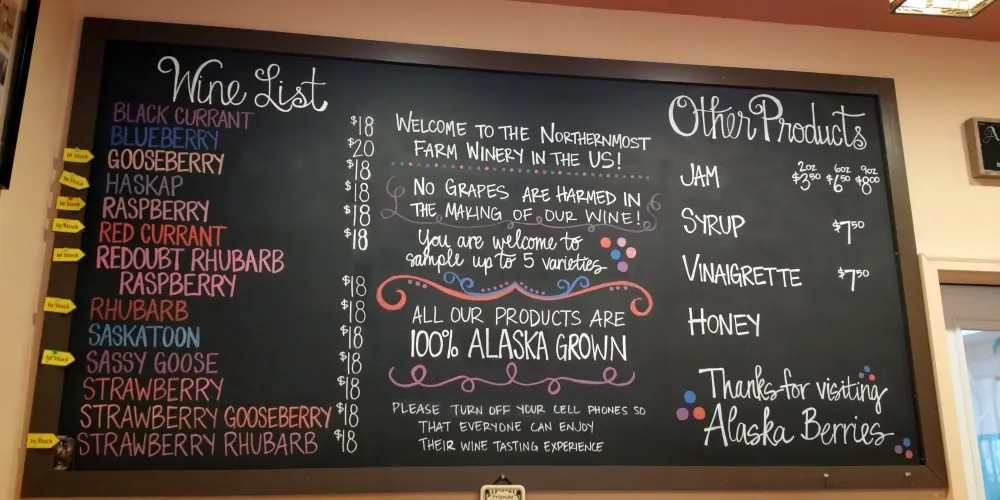 Wine List
BLACK CURRANT $18
BLUEBERRY $20
In Stock GOOSEBERRY $18
In Stock HASKAP $18
In Stock RASPBERRY $18
In Stock RED CURRANT $18
In Stock REDOUBT RHUBARB
RASPBERRY $18
In Stock RHUBARB $18
SASKATOON $18
In Stock SASSY GOOSE $18
STRAWBERRY $18
STRAWBERRY GOOSEBERRY $18
In Stock STRAWBERRY RHUBARB $18
WELCOME TO THE NORTHERNMOST
FARM WINERY IN THE US!
NO GRAPES ARE HARMED IN
THE MAKING OF OUR WINE!
You are welcome to
sample up to 5 varieties
ALL OUR PRODUCTS ARE
100% ALASKA GROWN
PLEASE TURN OFF YOUR CELL PHONES SO
THAT EVERYONE CAN ENJOY
THEIR WINE TASTING EXPERIENCE
Other Products
2oz 6oz 9oz
JAM $3.50 $6.50 $8.00
SYRUP $7.50
VINAIGRETTE $7.50
HONEY
Thanks for visiting
Alaska Berries
Friends